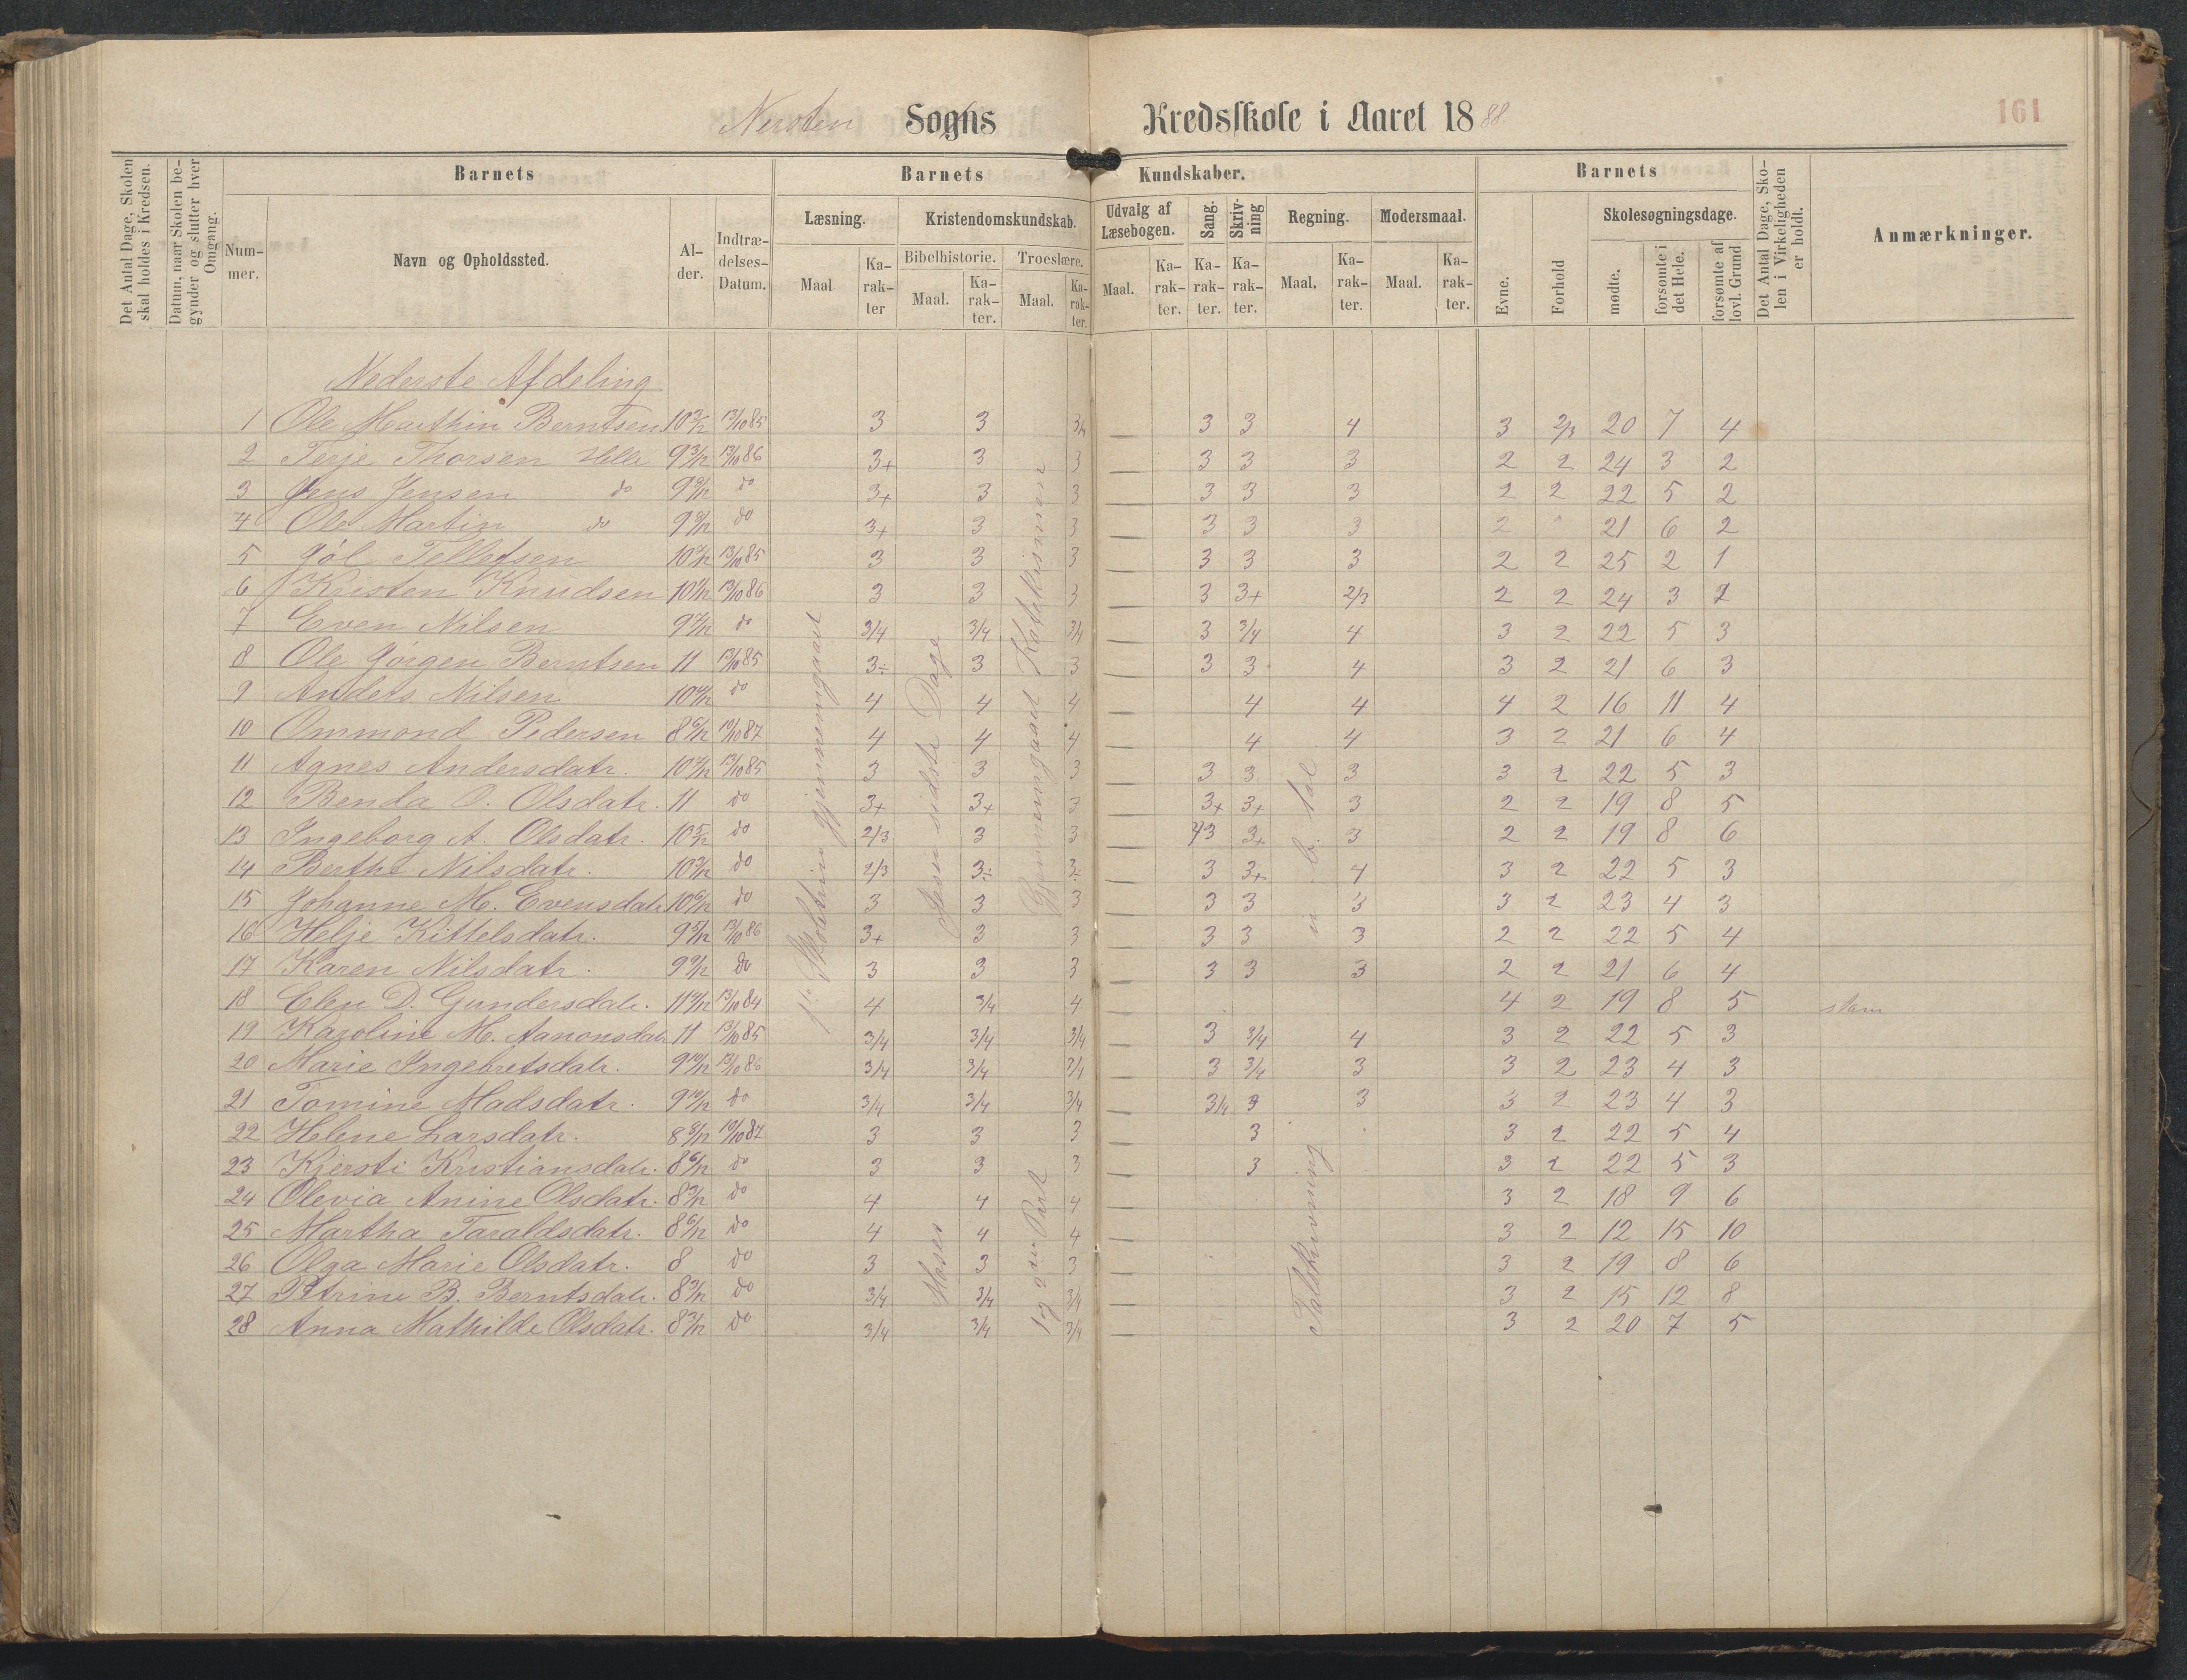 Nersten Sogns Kredsskole i Aaret 1888. 161
Det Antal Dage, Skolen skal holdes i Kredsen.
Datum, naar Skolen begynder og slutter hver Omgang.
Barnets Barnets Kundskaber. Barnets
Det Antal Dage, Skolen i Virkeligheden er holdt.
Anmærkninger.
Nummer. Navn og Opholdssted. Alder. Indtrædelses-Datum.
Læsning. Kristendomskundskab. Udvalg af Læsebogen. Sang. Skrivning Regning. Modersmaal. Evne. Forhold Skolesøgningsdage.
Bibelhistorie. Troeslære. mødte. forsømte i det Hele. forsømte af lovl. Grund
Maal Karakter Maal. Karakter. Maal. Karakter. Maal. Karakter. Karakter. Karakter. Maal. Karakter. Maal. Karakter.
Nederste Afdeling
1 Ole Marthin Berntsen 13/10 85 3 3 3/4 — 3 3 4 3 2/3 20 7 4
2 Terje Thorsen Helle 9 3/12 13/10 86 3+ 3 3 — 3 3 3 2 2 24 3 2
3 Jens Jensen do do 3+ 3 3 — 3 3 3 2 2 22 5 2
4 Ole Martin do do 3+ 3 3 — 3 3 3 2 " 21 6 2
5 Jøl Tellefsen 13/10 85 3 3 3 — 3 3 3 2 2 25 2 1
6 Kristen Knudsen 13/10 86 3 3 3 — 3 3+ 2/3 2 2 24 3 2
7 Even Nilsen do 3/4 3/4 3/4 — 3 3/4 4 3 2 22 5 3
8 Ole Jørgen Berntsen 11 13/10 85 3÷ 3 3 — 3 3 4 3 2 21 6 3
9 Anders Nilsen do 4 4 4 — 4 4 4 2 16 11 4
10 Ommond Pedersen 8 6/12 10/10 87 4 4 4 — 4 4 3 2 21 6 4
11 Agnes Andersdatr. 13/10 85 3 3 3 — 3 3 3 3 2 22 5 3
12 Benda O. Olsdatr. 11 do 3+ 3+ 3 — 3+ 3+ 3 2 2 19 8 5
13 Ingeborg A. Olsdatr. 10 5/12 do 2/3 3 3 — 3+ 3 2 2 19 8 6
14 Berthe Nilsdatr. do 2/3 3÷ 3÷ — 3 3+ 4 3 2 22 5 3
15 Johanne M. Evensdatr. 10 6/12 do 3 3 3 — 3 3 3 3 2 23 4 3
16 Helje Kittelsdatr. 9 5/12 13/10 86 3+ 3 3 — 3 3 3 2 2 22 5 4
17 Karen Nilsdatr. do 3 3 3 — 3 3 3 2 2 21 6 4
18 Elen D. Gundersdatr. 13/10 84 4 3/4 4 — 4 2 19 8 5
19 Karoline M. Aanonsdatr. 11 13/10 85 3/4 3/4 3/4 — 3 3/4 4 3 2 22 5 3
20 Marie Ingebretsdatr. 9 10/12 13/10 86 3/4 3/4 3/4 — 3 3/4 3 3 2 23 4 3
21 Tomine Madsdatr. 9 10/12 do 3/4 3/4 3/4 — 3/4 3 3 3 2 23 4 3
22 Helene Larsdatr. 8 8/12 10/10 87 3 3 3 — 3 3 2 22 5 4
23 Kjersti Kristiansdatr. 8 6/12 do 3 3 3 — 3 3 2 22 5 3
24 Olevia Anine Olsdatr. do 4 4 4 — 3 2 18 9 6
25 Martha Taraldsdatr. 8 6/12 do 4 4 4 — 3 2 12 15 10
26 Olga Marie Olsdatr. 8 do 3 3 3 — 3 2 19 8 6
27 Petrine B. Berntsdatr. do 3/4 3/4 3/4 — 3 2 15 12 8
28 Anna Mathilde Olsdatr. do 3/4 3/4 3/4 — 3 2 20 7 5
1ste Skoletrin gjennemgaaet
Moses
Jesu sidste Dage
1 og 2den Part
Gjennemgaaet Katekismen
Talskrivning
u. b. tal